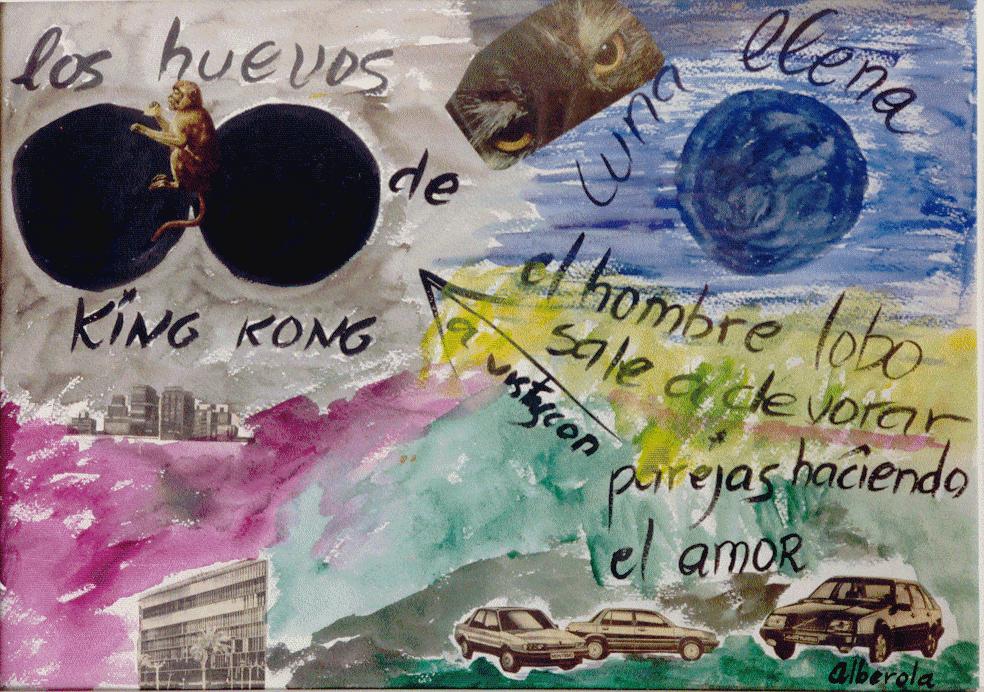 los huevos
de
KING KONG
luna llena
el hombre lobo
sale a devorar
parejas haciendo
el amor
a
Alberola